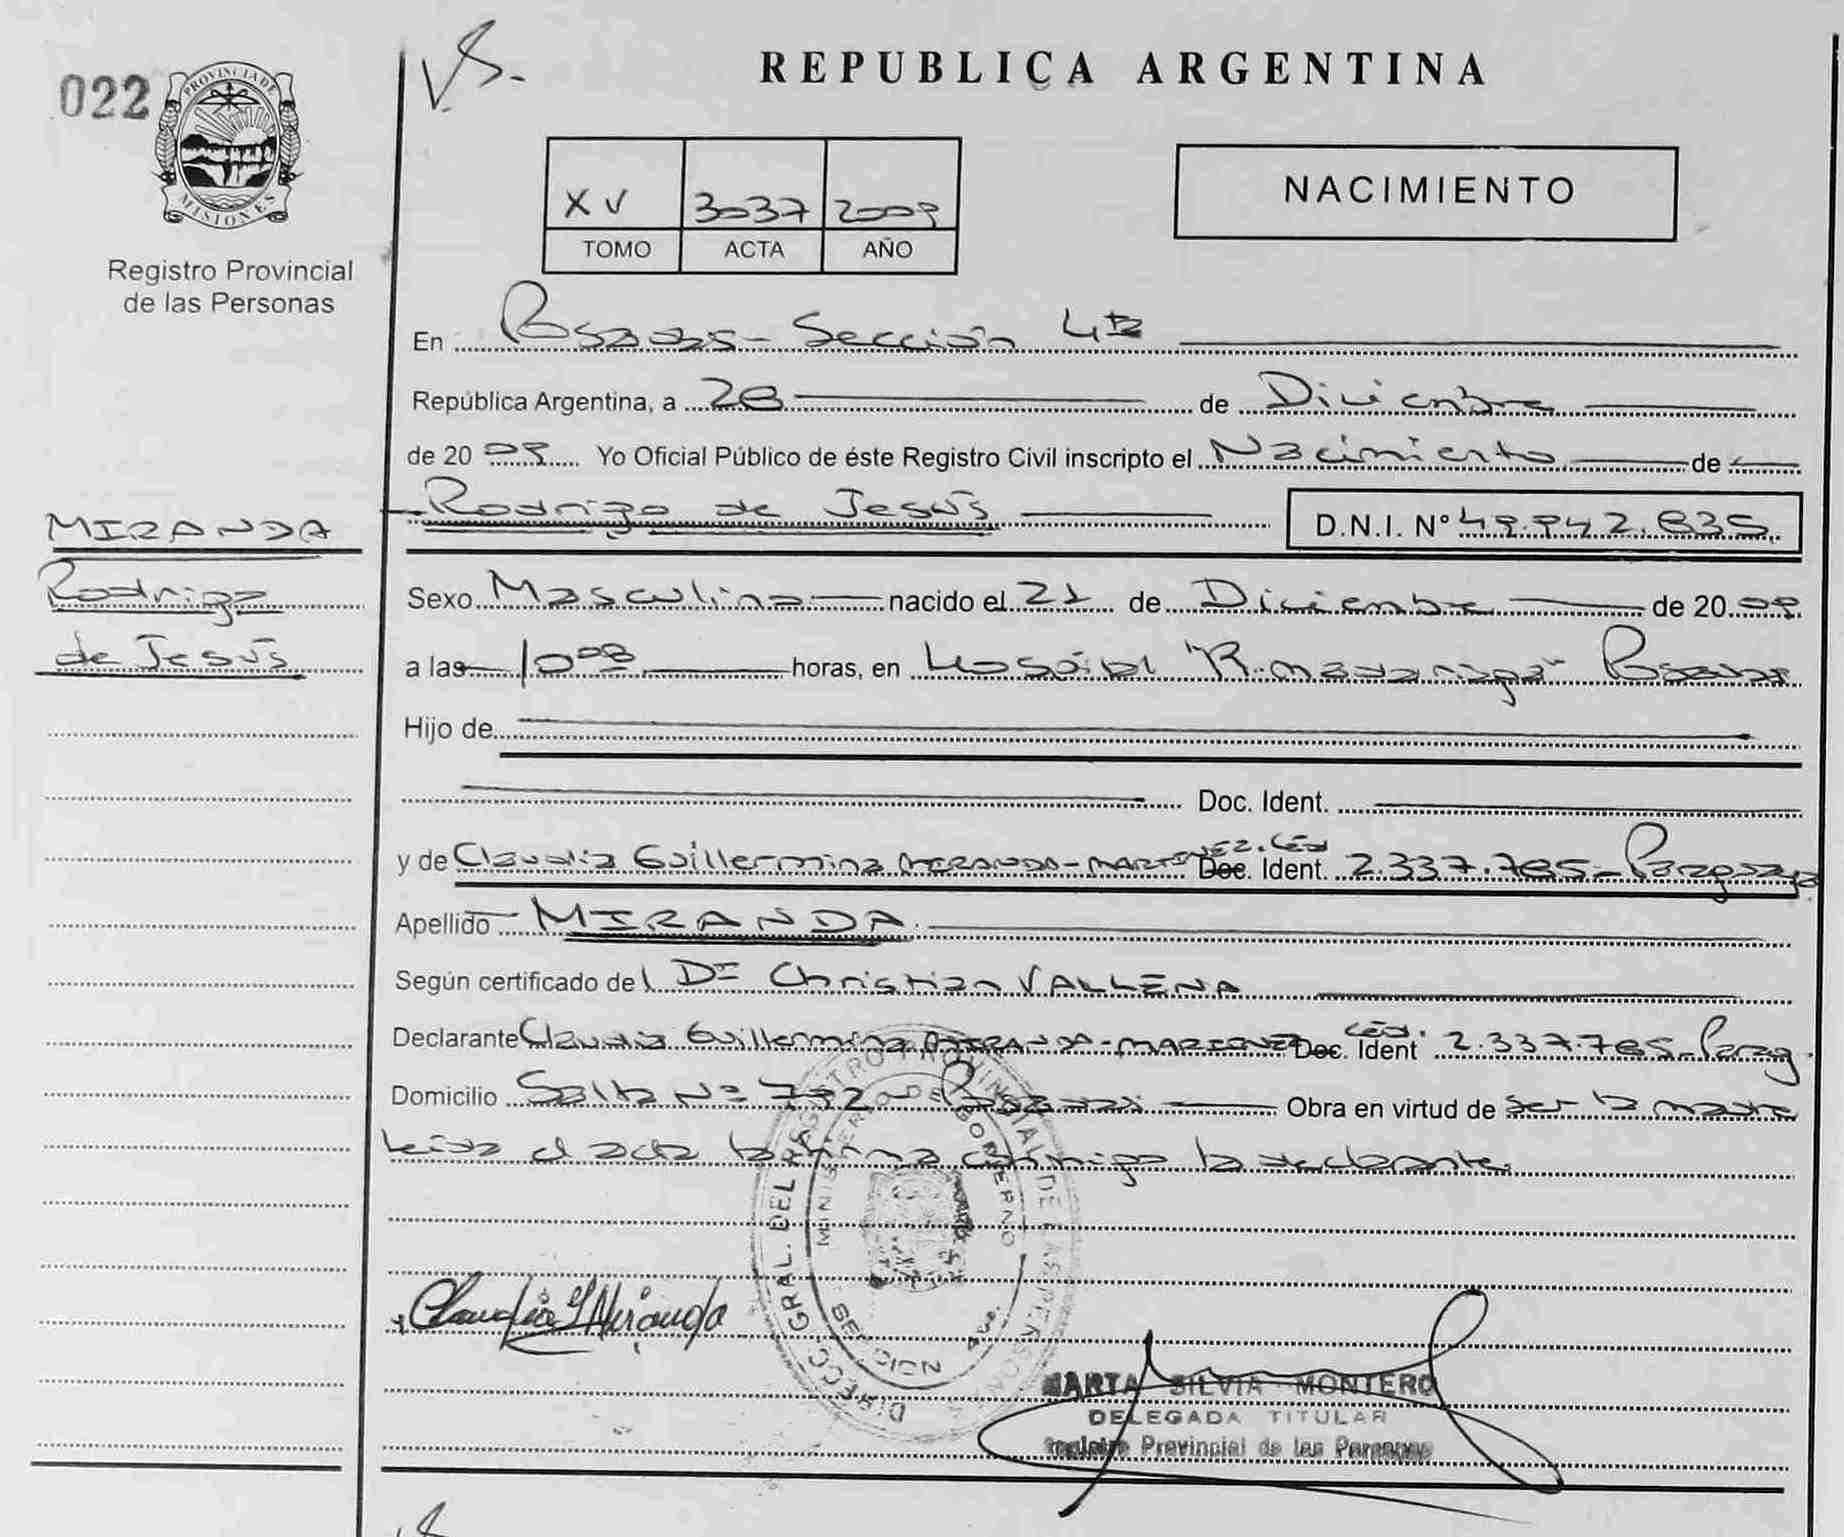 V.S.
REPUBLICA ARGENTINA
022
PROVINCIA DE
MISIONES
Registro Provincial
de las Personas
XV 3037 2009
TOMO ACTA AÑO
NACIMIENTO
En Posadas - Sección 4ta
República Argentina, a 28 de Diciembre
de 2009 Yo Oficial Público de éste Registro Civil inscripto el Nacimiento de
Rodrigo de Jesús D.N.I. Nº 49.942.835.
MIRANDA
Rodrigo
de Jesús
Sexo Masculino nacido el 21 de Diciembre de 2009
a las 10 08 horas, en Hospital "R. Madariaga" Posadas
Hijo de
Doc. Ident.
y de Claudia Guillermina MIRANDA-MARTINEZ. Céd Doc. Ident. 2.337.785 - Paraguaya
Apellido MIRANDA.
Según certificado del Dr Christian VALLENA
Declarante Claudia Guillermina MIRANDA-MARTINEZ Céd. Doc. Ident 2.337.785 - Parag.
Domicilio Salta Nº 792 Posadas Obra en virtud de ser la madre
leida el acta la firma conmigo la declarante.
DIRECC. GRAL. DEL REGISTRO PROVINCIAL DE LAS PERSONAS
MINISTERIO DE GOBIERNO
Claudia G Miranda
MARTA SILVIA MONTERO
DELEGADA TITULAR
Registro Provincial de las Personas